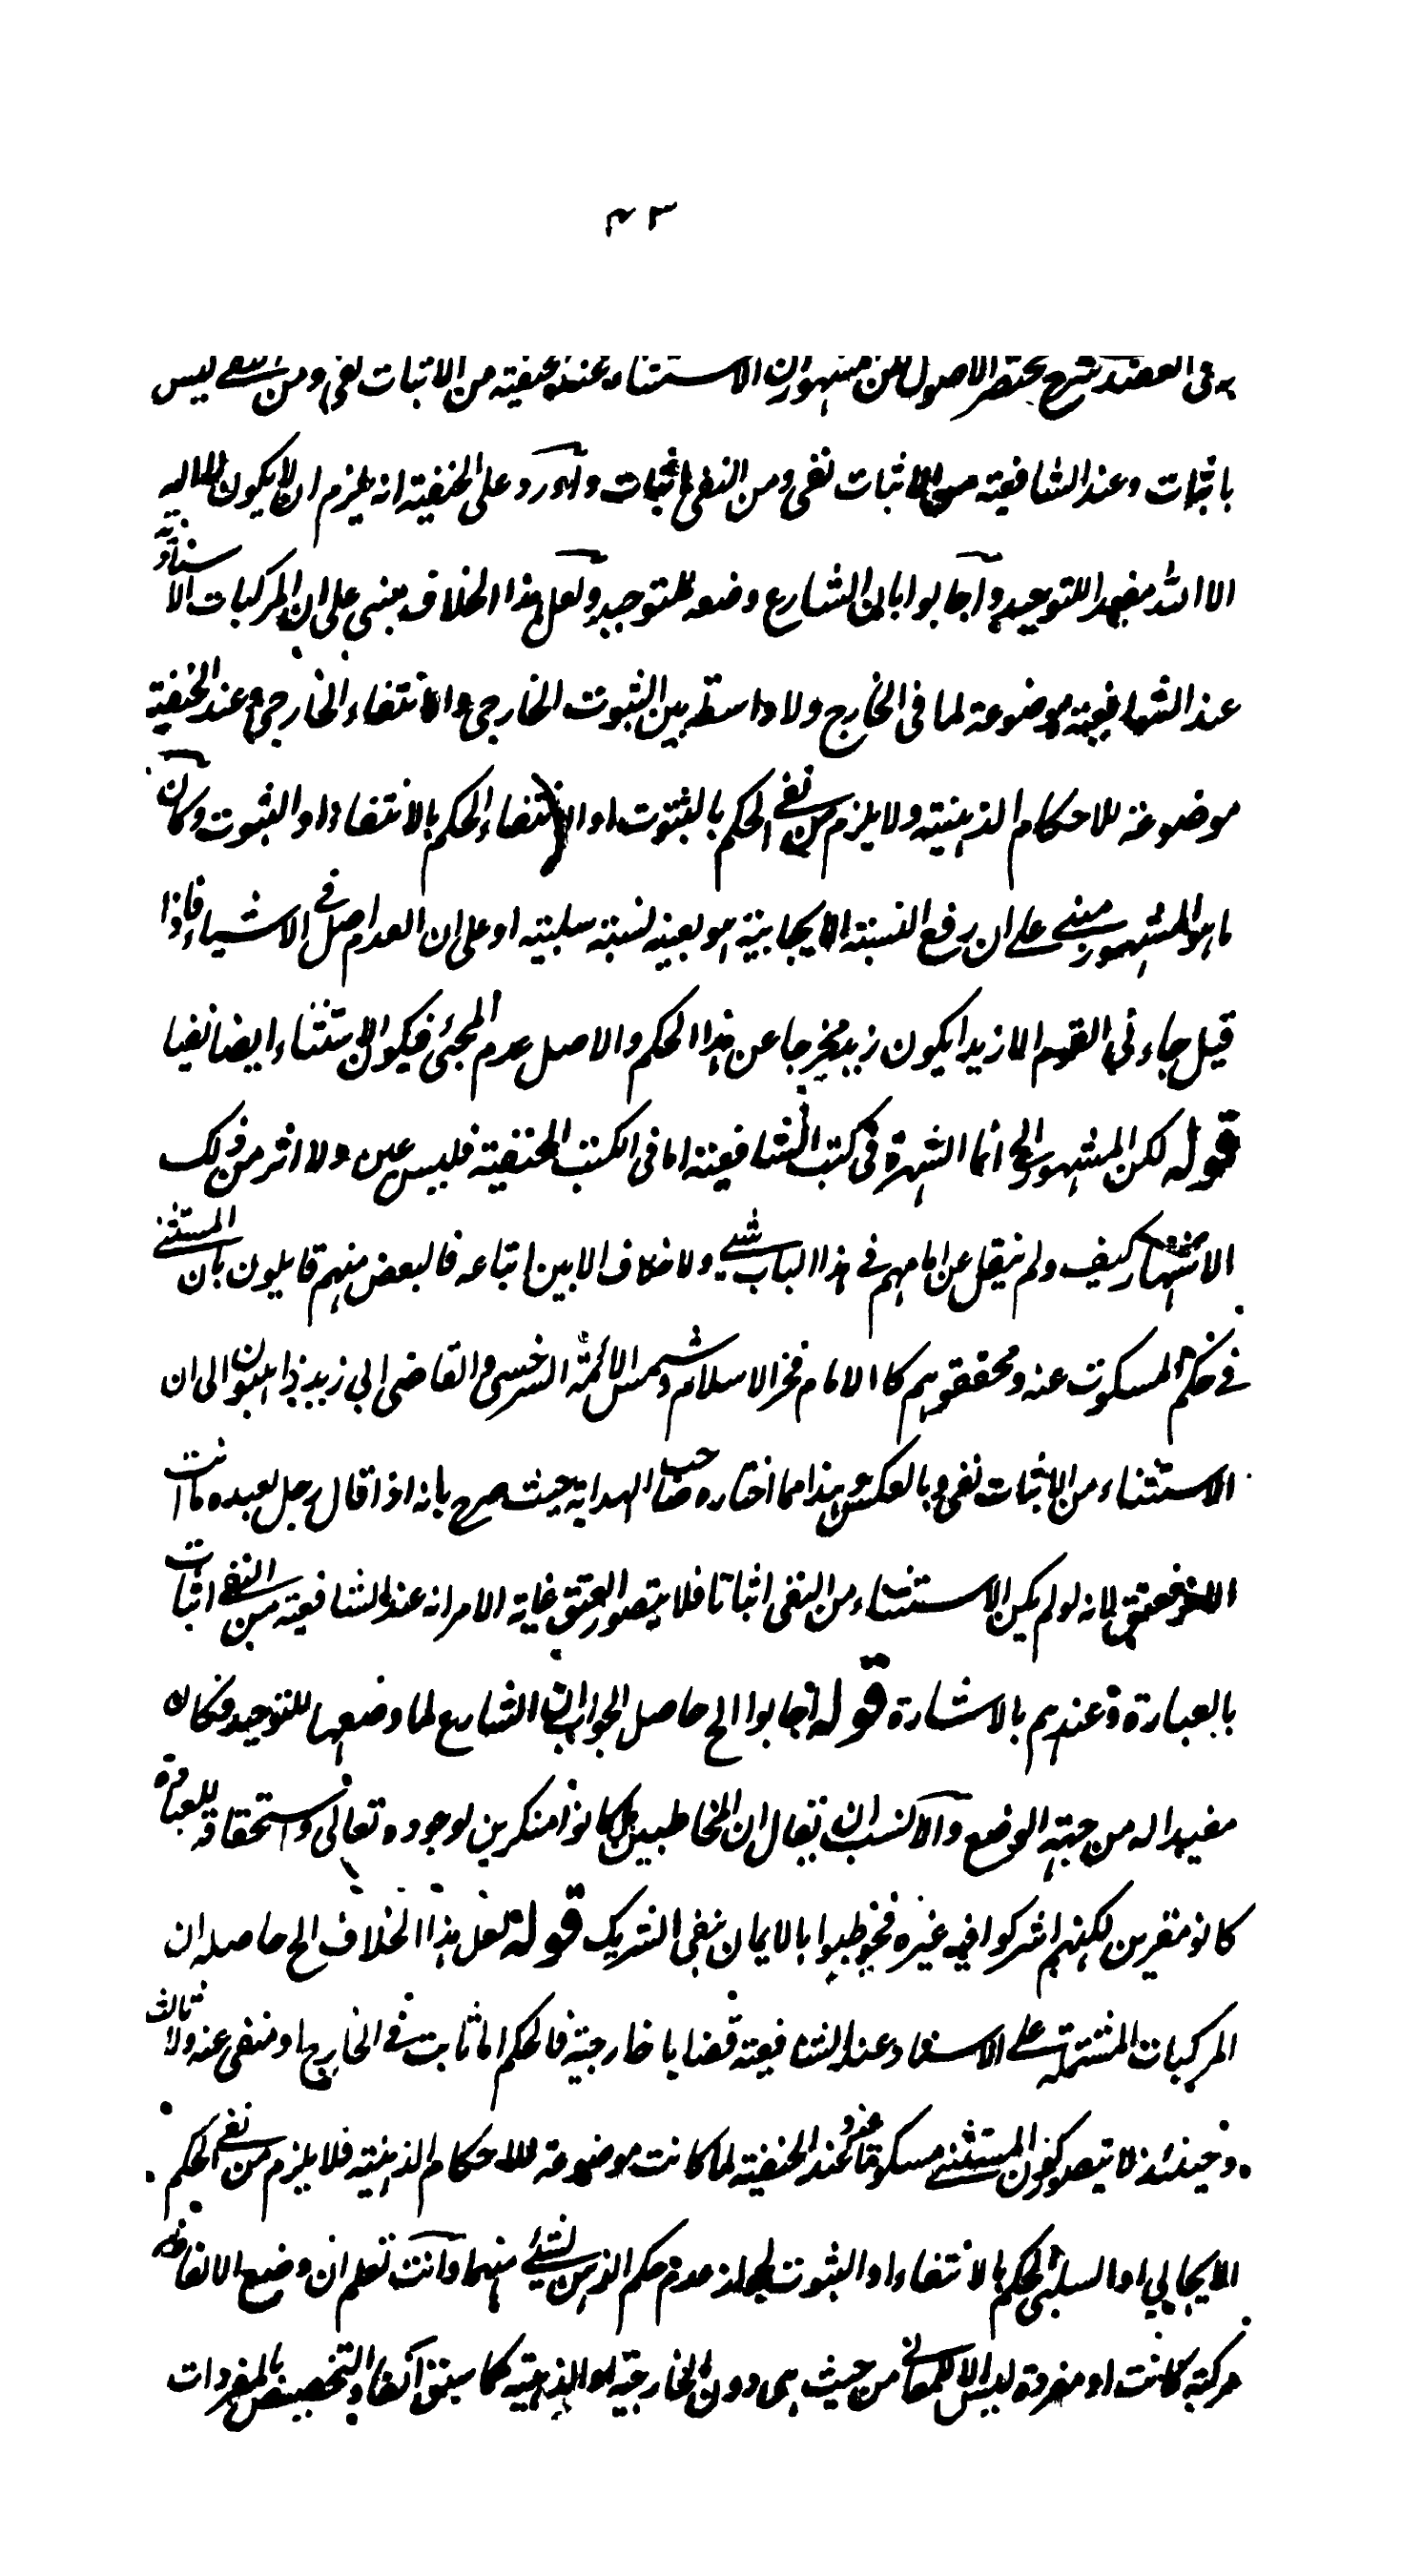 ۴۳
به فى العضد شرح مختصر الاصول لكن مشهور ان الاستثناء عند الحنفية من الاثبات نفى ومن النفى ليس
باثبات وعند الشافعية من الاثبات نفى ومن النفى اثبات واورد على الحنفية انه يلزم ان لا يكون لا اله
الا الله مفيدا للتوحيد واجابوا بان الشارع وضعه للتوحيد ولعل هذا الخلاف مبنى على ان المركبات الاسنادية
عند الشافعية موضوعة لما فى الخارج ولا واسطة بين الثبوت الخارجى والانتفاء الخارجى وعند الحنفية
موضوعة للاحكام الذهنية ولا يلزم من نفى الحكم بالثبوت او الانتفاء الحكم بالانتفاء او الثبوت وكان
ما هو المشهور مبنى على ان رفع النسبة الايجابية هو بعينه نسبة سلبية او على ان العدم اصل فى الاشياء فاذا
قيل جاءنى القوم الا زيدا يكون زيد مخرجا عن هذا الحكم والاصل عدم المجئى فيكون الاستثناء ايضا نفيا
قوله لكن المشهور الخ انما الشهرة فى كتب الشافعية اما فى الكتب الحنفية فليس عين ولا اثر من ذلك
الاشتهار كيف ولم ينقل عن امامهم فى هذا الباب شىء ولا خلاف الا بين اتباعه فالبعض منهم قايلون بان المستثنى
فى حكم المسكوت عنه ومحققوهم كا الامام فخر الاسلام وشمس الائمة السرخسى والقاضى ابى زيد ذاهبون الى ان
الاستثناء من الاثبات نفى وبالعكس وهذا مما اختاره صاحب الهداية حيث صرح بانه اذا قال رجل لعبده ما انت
الا حر فعتق لانه لو لم يكن الاستثناء من النفى اثباتا فلا يتصور العتق غاية الامر انه عند الشافعية من النفى اثبات
بالعبارة وعندهم بالاشارة قوله اجابوا الخ حاصل الجواب ان الشارع لما وضعها للتوحيد فكان
مفيدا له من جهة الوضع والانسب ان يقال ان المخاطبين ما كانوا منكرين لوجوده تعالى واستحقاقه للعبادة
كانو مقرين لكنهم اشركوا فيه غيره فخوطبوا بالايمان بنفى الشريك قوله لعل هذا الخلاف الخ حاصله ان
المركبات المشتملة على الاسناد عند الشافعية قضايا خارجية فالحكم اما ثابت فى الخارج او منفى عنه ولا ثالث
وحينئذ لا يتصور كون المستثنى مسكوتا عنه وعند الحنفية لما كانت موضوعة للاحكام الذهنية فلا يلزم من نفى الحكم
الايجابى او السلبى الحكم بالانتفاء او الثبوت لجواز عدم حكم الذهن بشىء منهما وانت تعلم ان وضع الالفاظ
مركبة كانت او مفردة ليس الا للمعانى من حيث هى دون الخارجية او الذهنية كما سبق آنفا والتخصيص بالمفردات